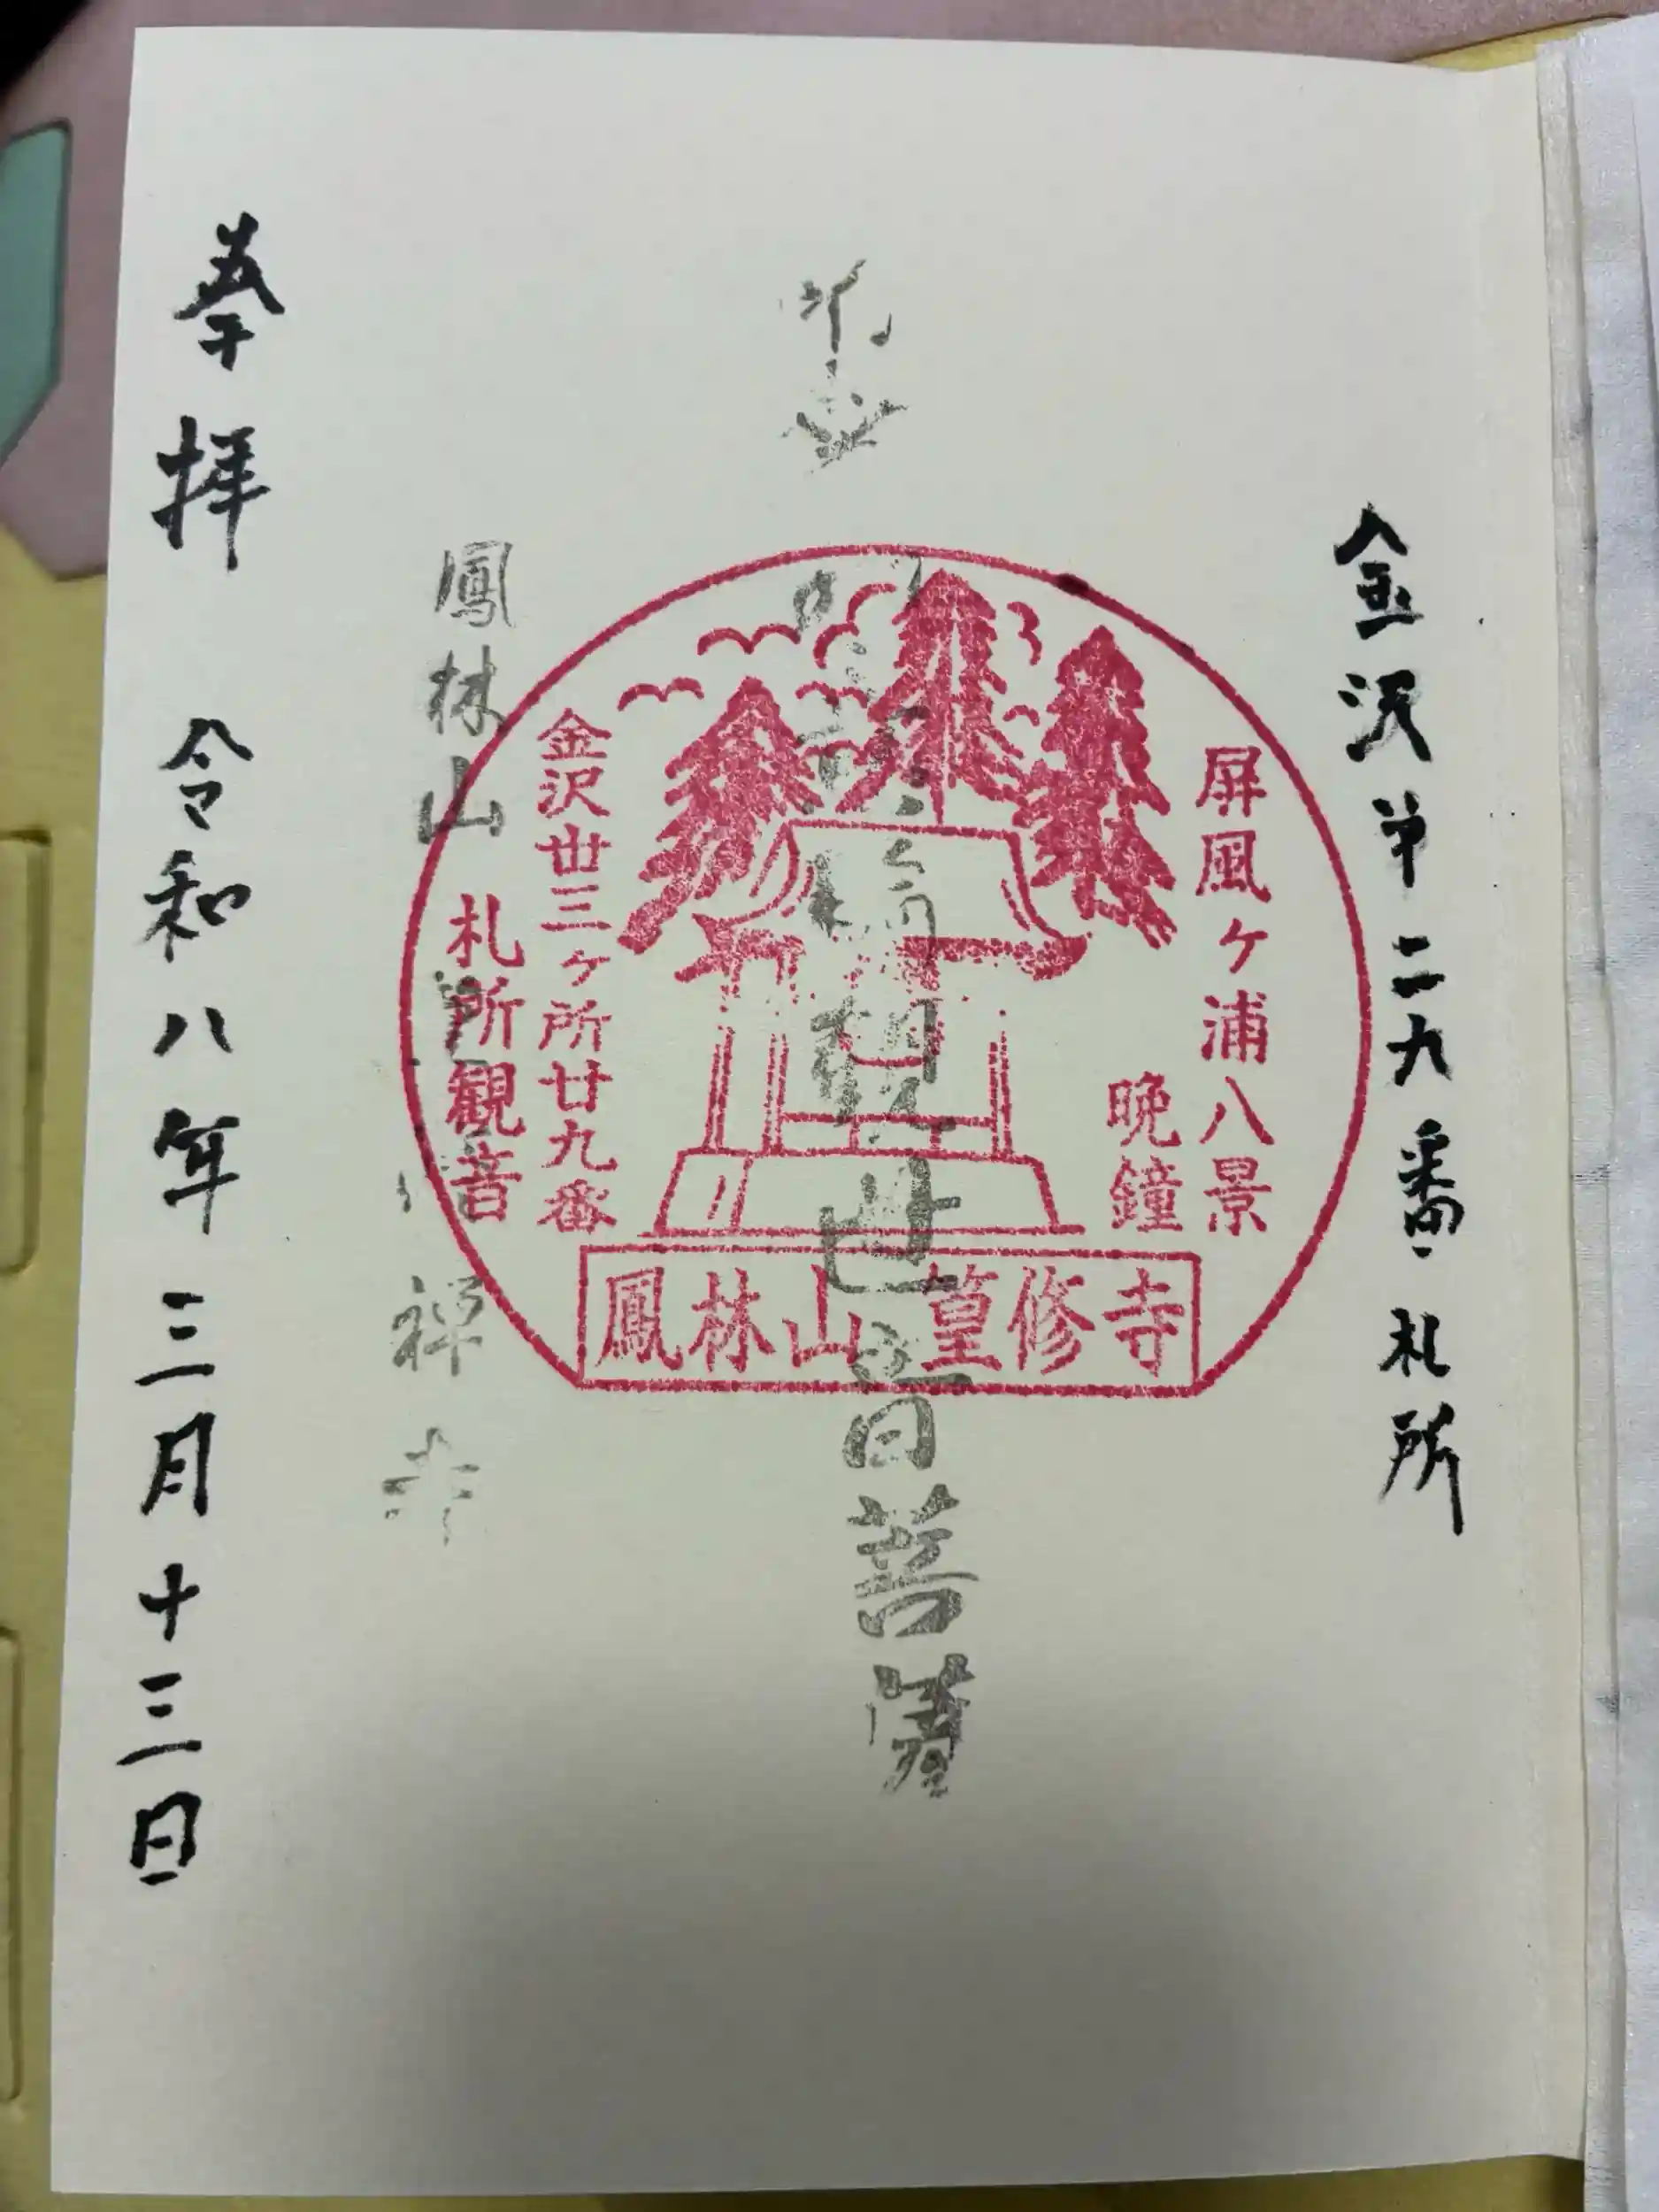 金沢第二九番札所
屏風ヶ浦八景
晩鐘
観世音菩薩
金沢丗三ヶ所廿九番
札所観音
鳳林山 篁修寺
鳳林山
禅寺
奉拝 令和八年三月十三日